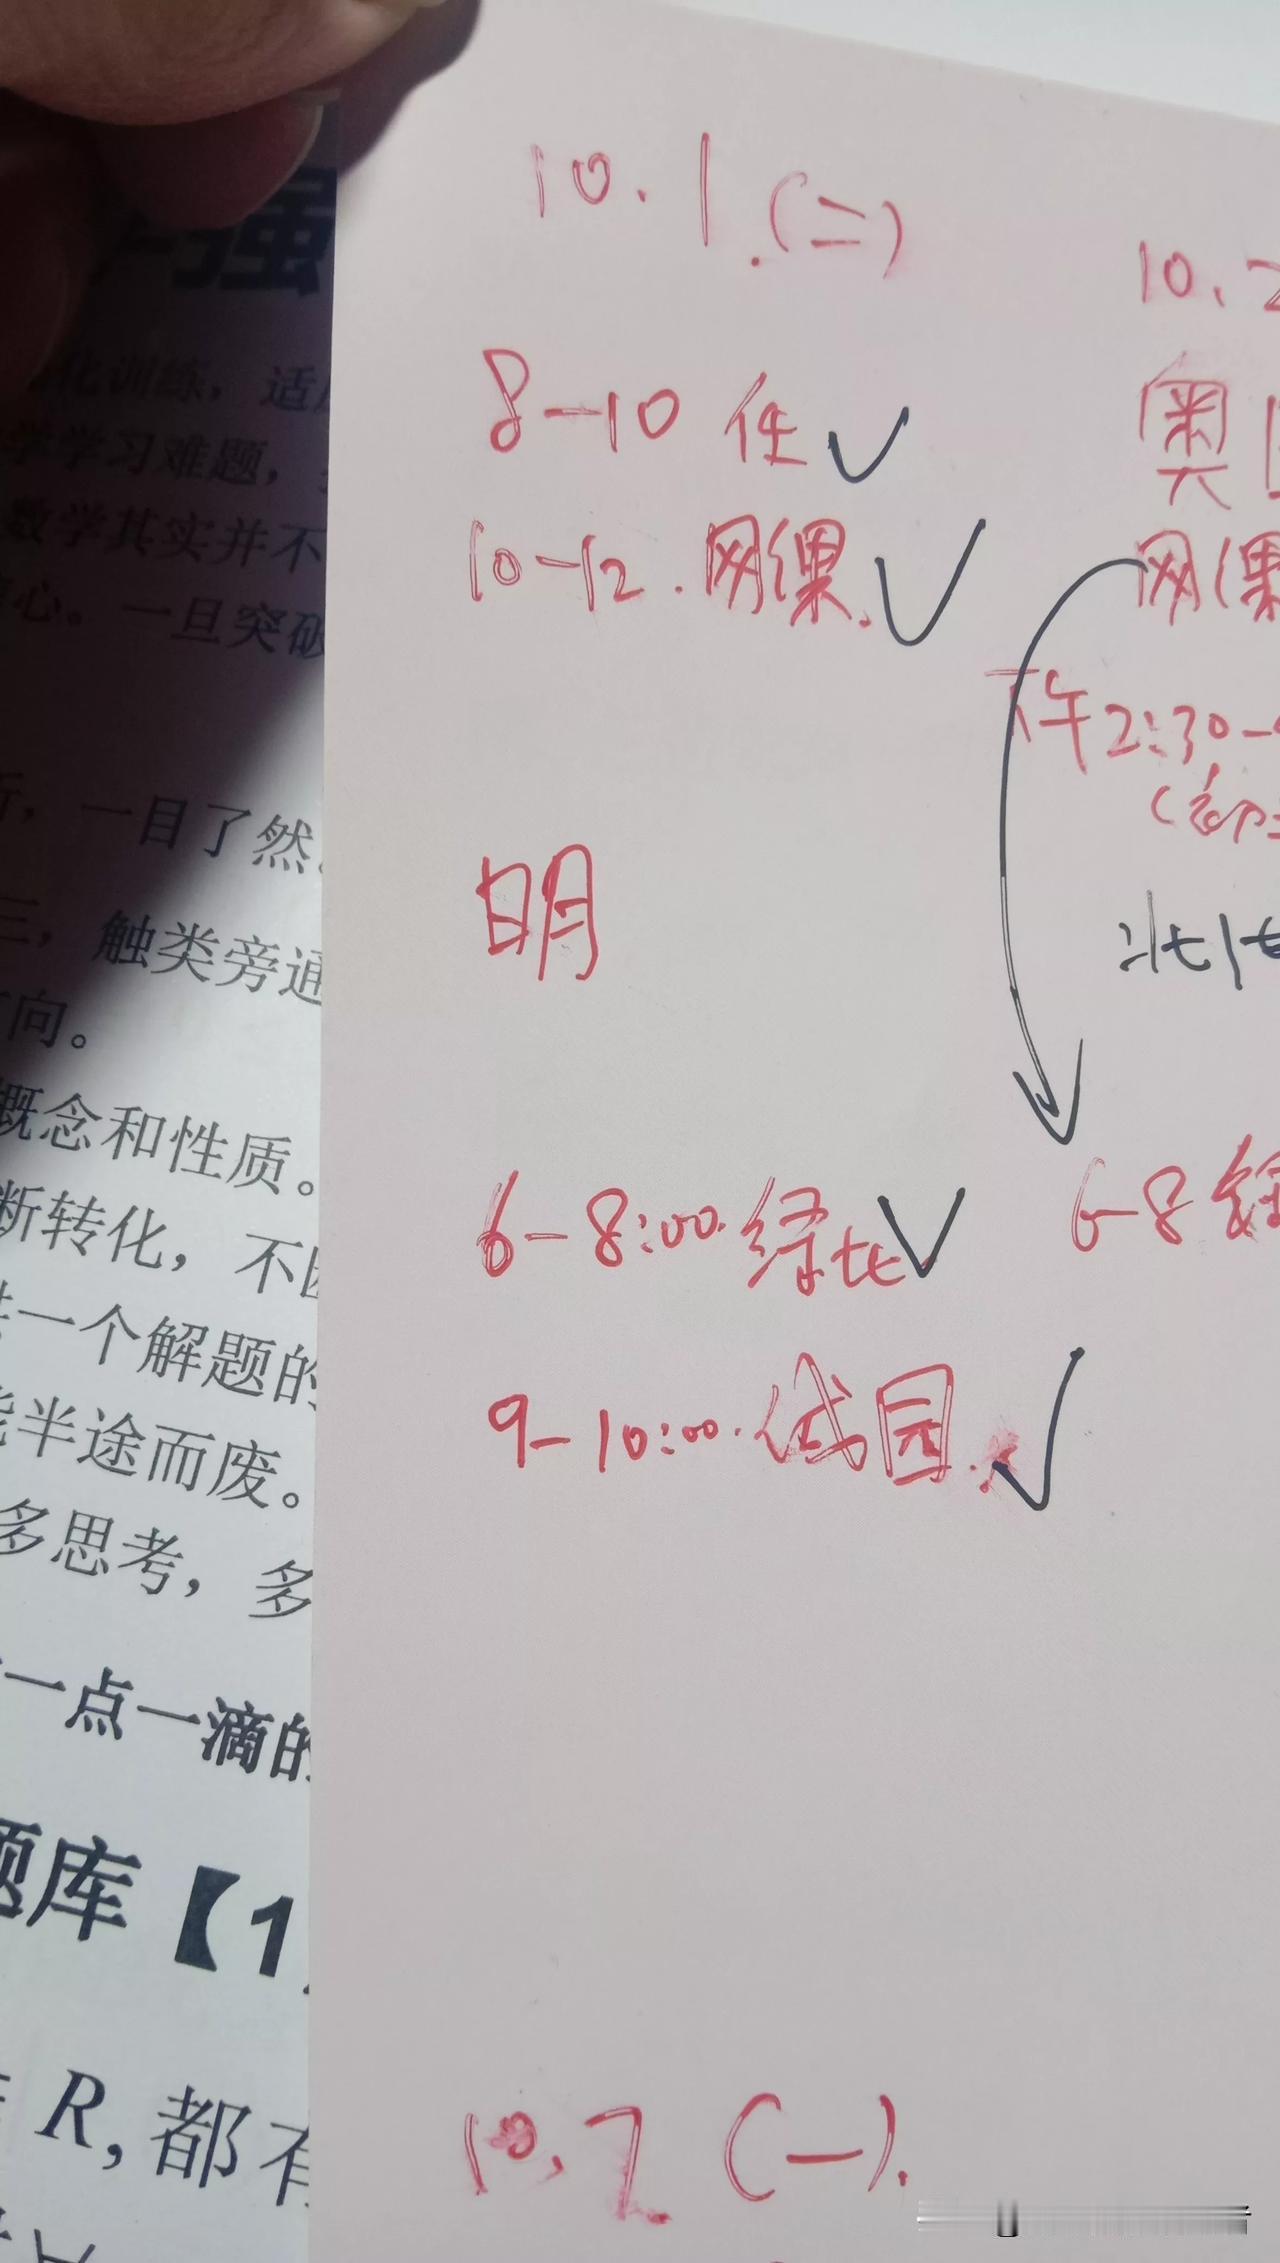 10.1.(二)
8-10 任
10-12.网课.
明
6-8:00.绿地
9-10:00.
10.7(一).
10.2
奥
网课
下午2:30-
6-8
强
化训练，适
学学习难题，
数学其实并不
心。一旦突破
，一目了然
三，触类旁通
向。
概念和性质。
断转化，不
一个解题的
半途而废。
多思考，多
一点一滴的
题库【1
R，都有